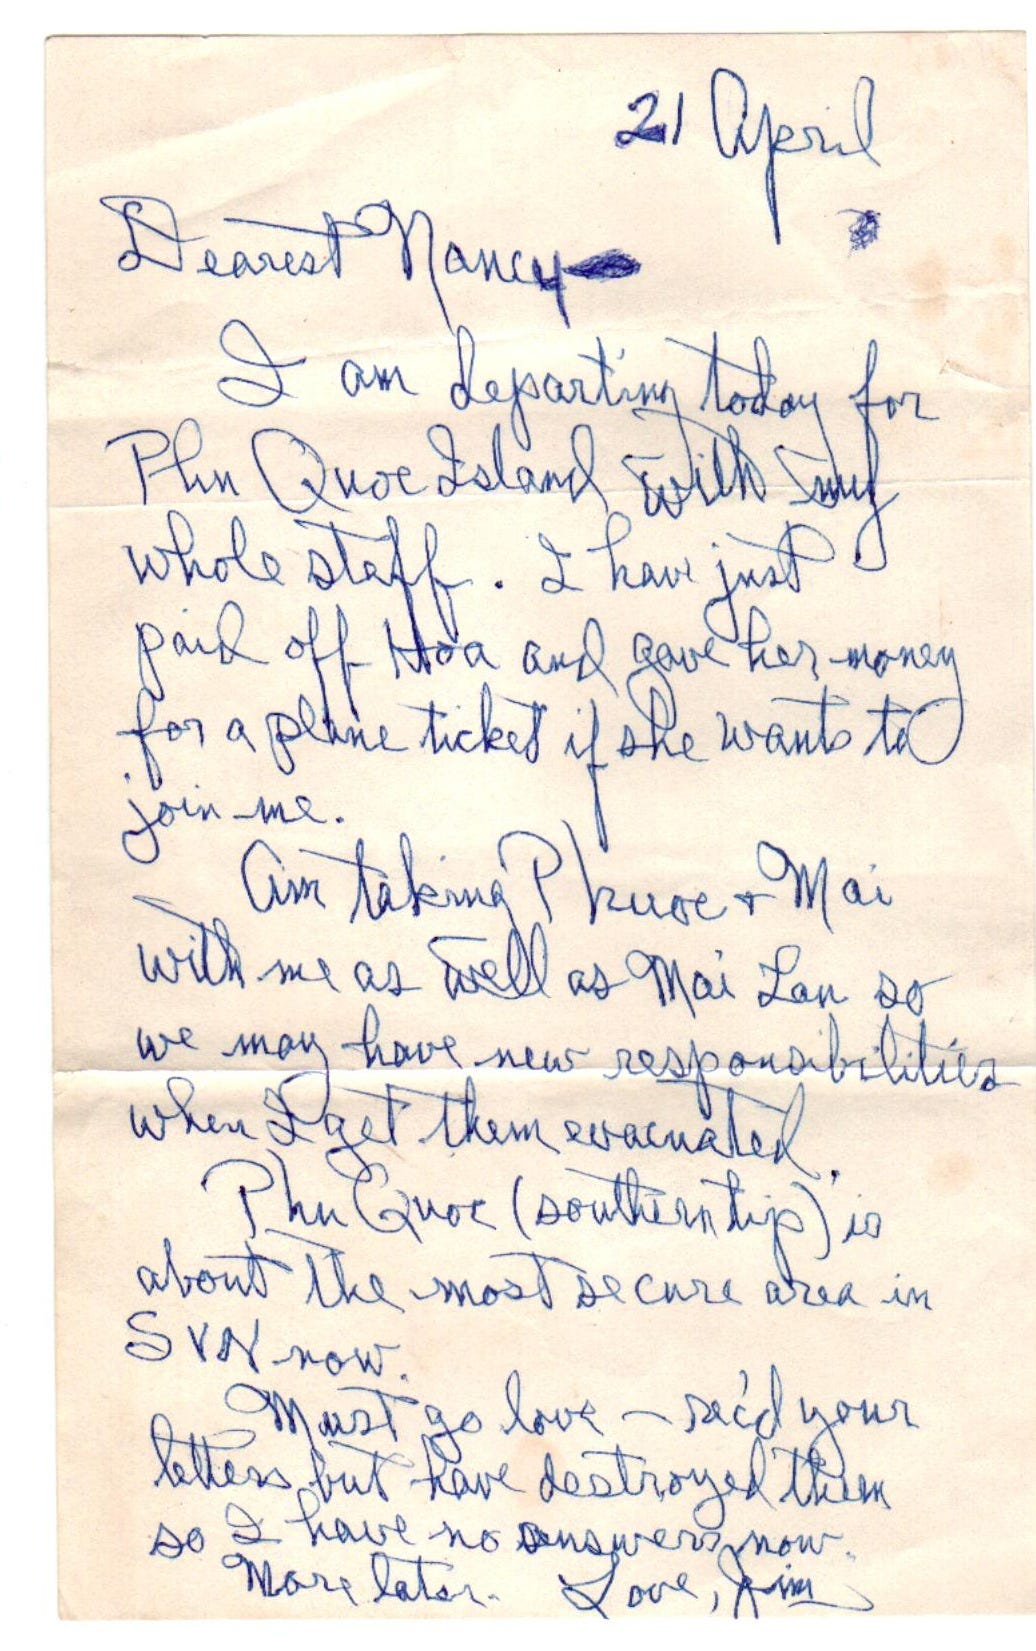 21 April
Dearest Nancy -
I am departing today for
Phu Quoc Island with my
whole staff. I have just
paid off Hoa and gave her money
for a plane ticket if she wants to
join me.
Am taking Phuoc + Mai
with me as well as Mai Lan so
we may have new responsibilities
when I get them evacuated.
Phu Quoc (southern tip) is
about the most secure area in
SVN now.
Must go love - rec'd your
letters but have destroyed them
so I have no answers now.
More later. Love, Jim